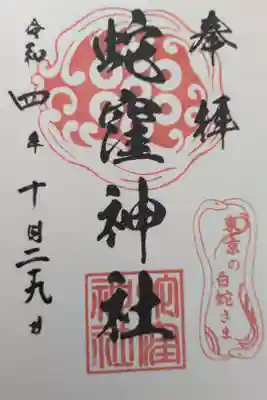 奉拝
蛇窪神社
令和四年十月二十九日
東京の
白蛇さま